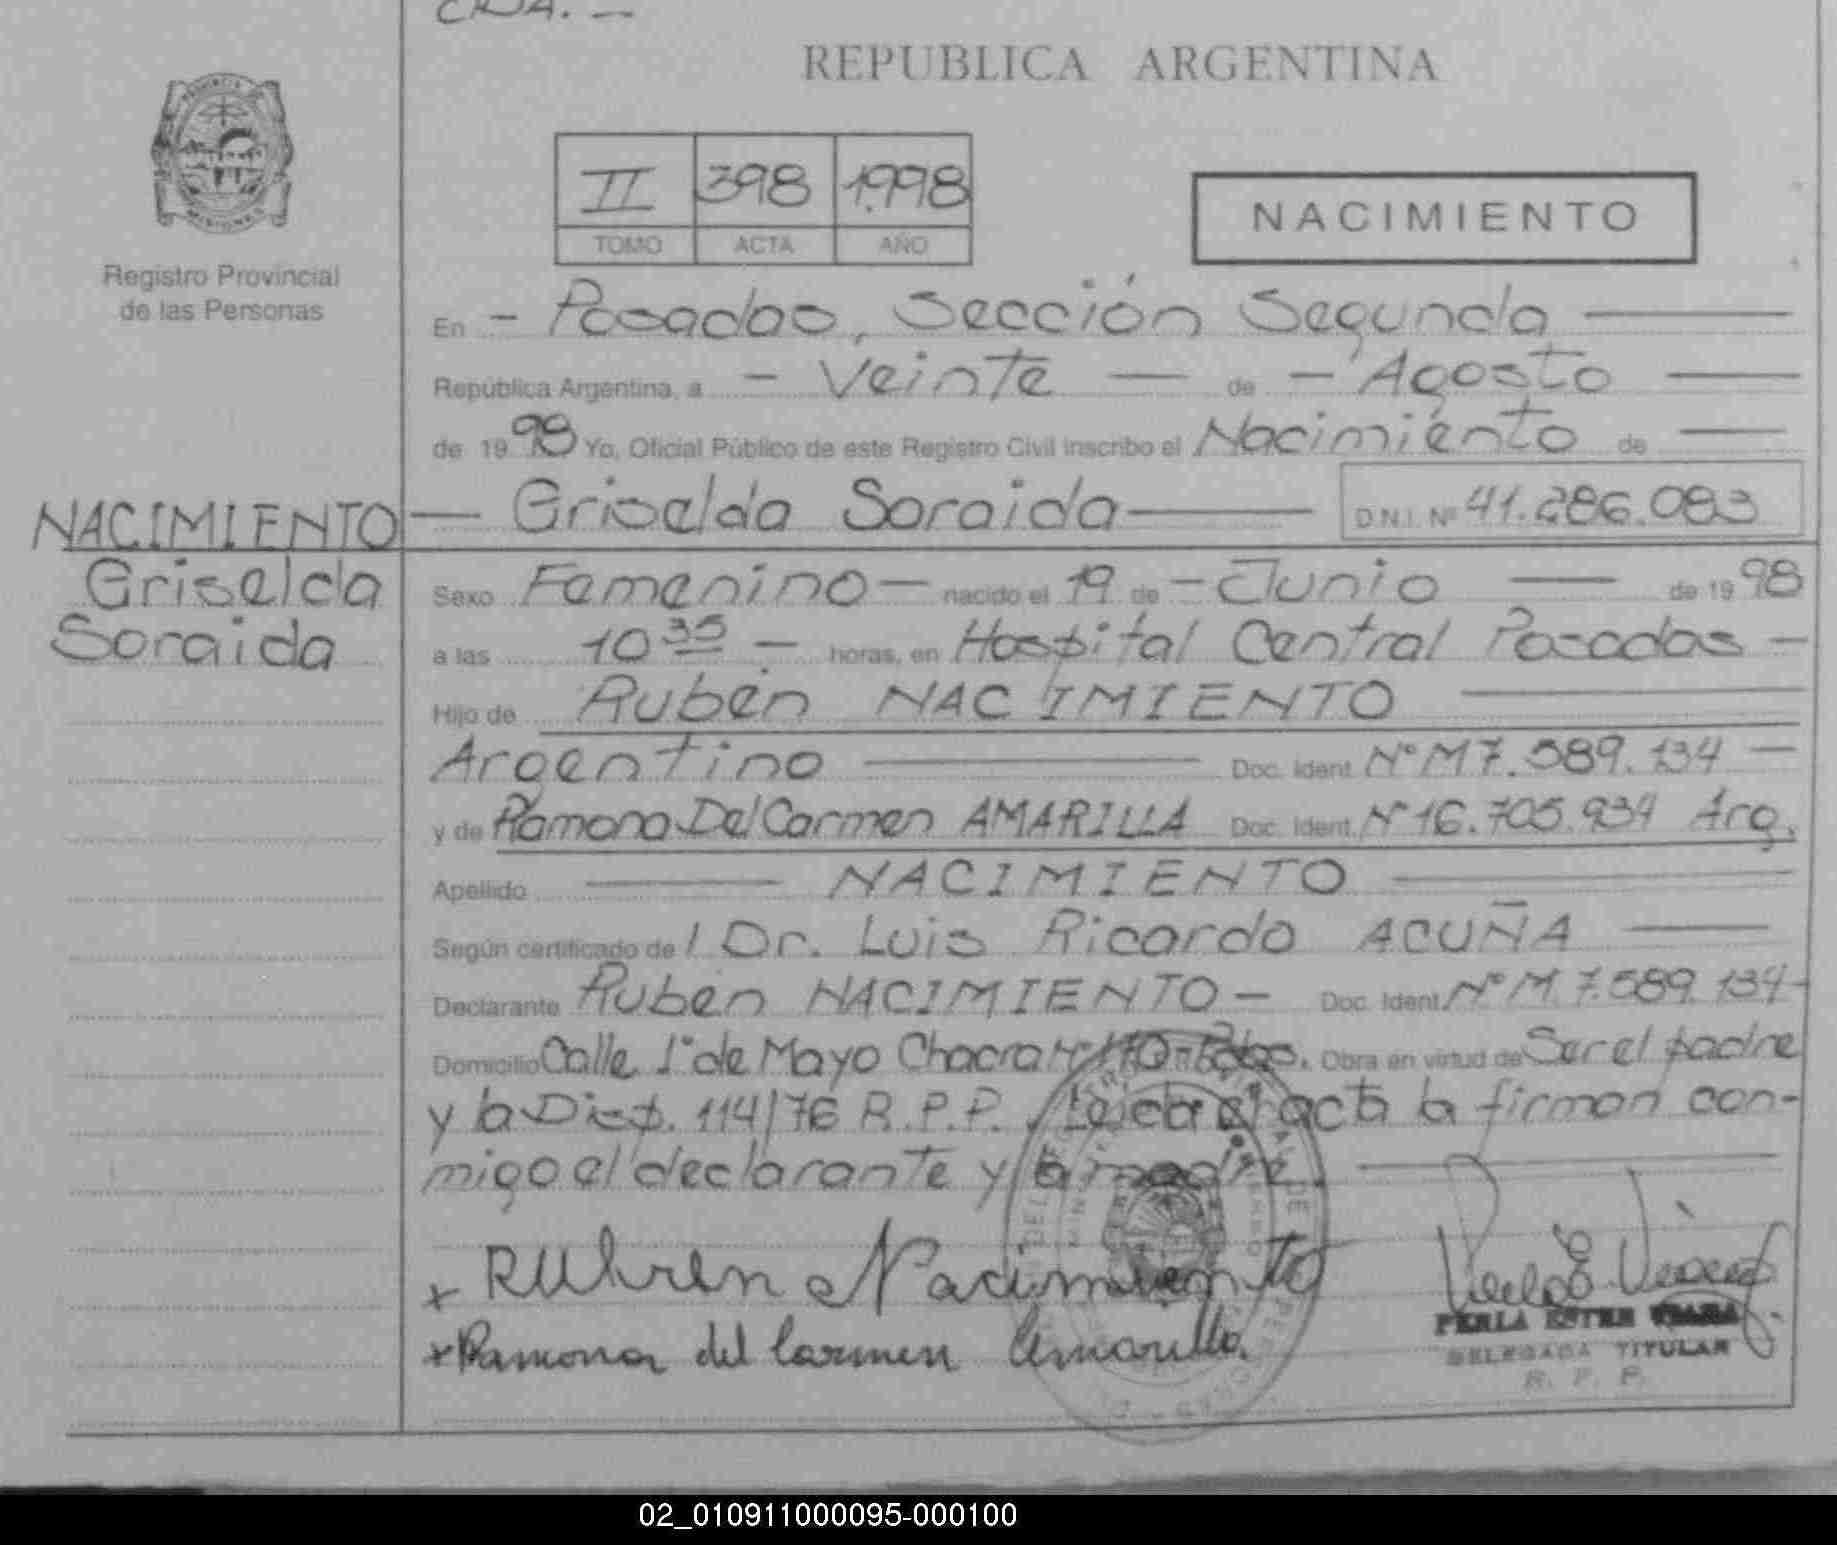 REPUBLICA ARGENTINA
II 398 1.998
TOMO ACTA AÑO
NACIMIENTO
Registro Provincial
de las Personas
En - Posadas, Sección Segunda
República Argentina, a - Veinte — de - Agosto
de 19 98 Yo, Oficial Público de este Registro Civil inscribo el Nacimiento de
NACIMIENTO
Griselda
Soraida
— Griselda Soraida — D.N.I. Nº 41.286.083
Sexo Femenino — nacido el 19 de - Junio — de 19 98
a las 10 35 - horas, en Hospital Central Posadas -
Hijo de Rubén NACIMIENTO
Argentino — Doc. Ident. Nº M 7.589.134 —
y de Ramona Del Carmen AMARILLA Doc. Ident. Nº 16.705.934 Arg.
Apellido — NACIMIENTO —
Según certificado de / Dr. Luis Ricardo ACUÑA —
Declarante Rubén NACIMIENTO - Doc. Ident. Nº M. 7.589.134-
Domicilio Calle 1º de Mayo Chacra Nº 170 - Pdas. Obra en virtud de Ser el padre
y la Disp. 114/76 R.P.P. Leída el acta la firman con-
migo el declarante y la madre.
x RUbren Nacimiento
x Ramona del Carmen Amarilla.
PERLA ESTER
DELEGADA TITULAR
R. P. P.
02_010911000095-000100